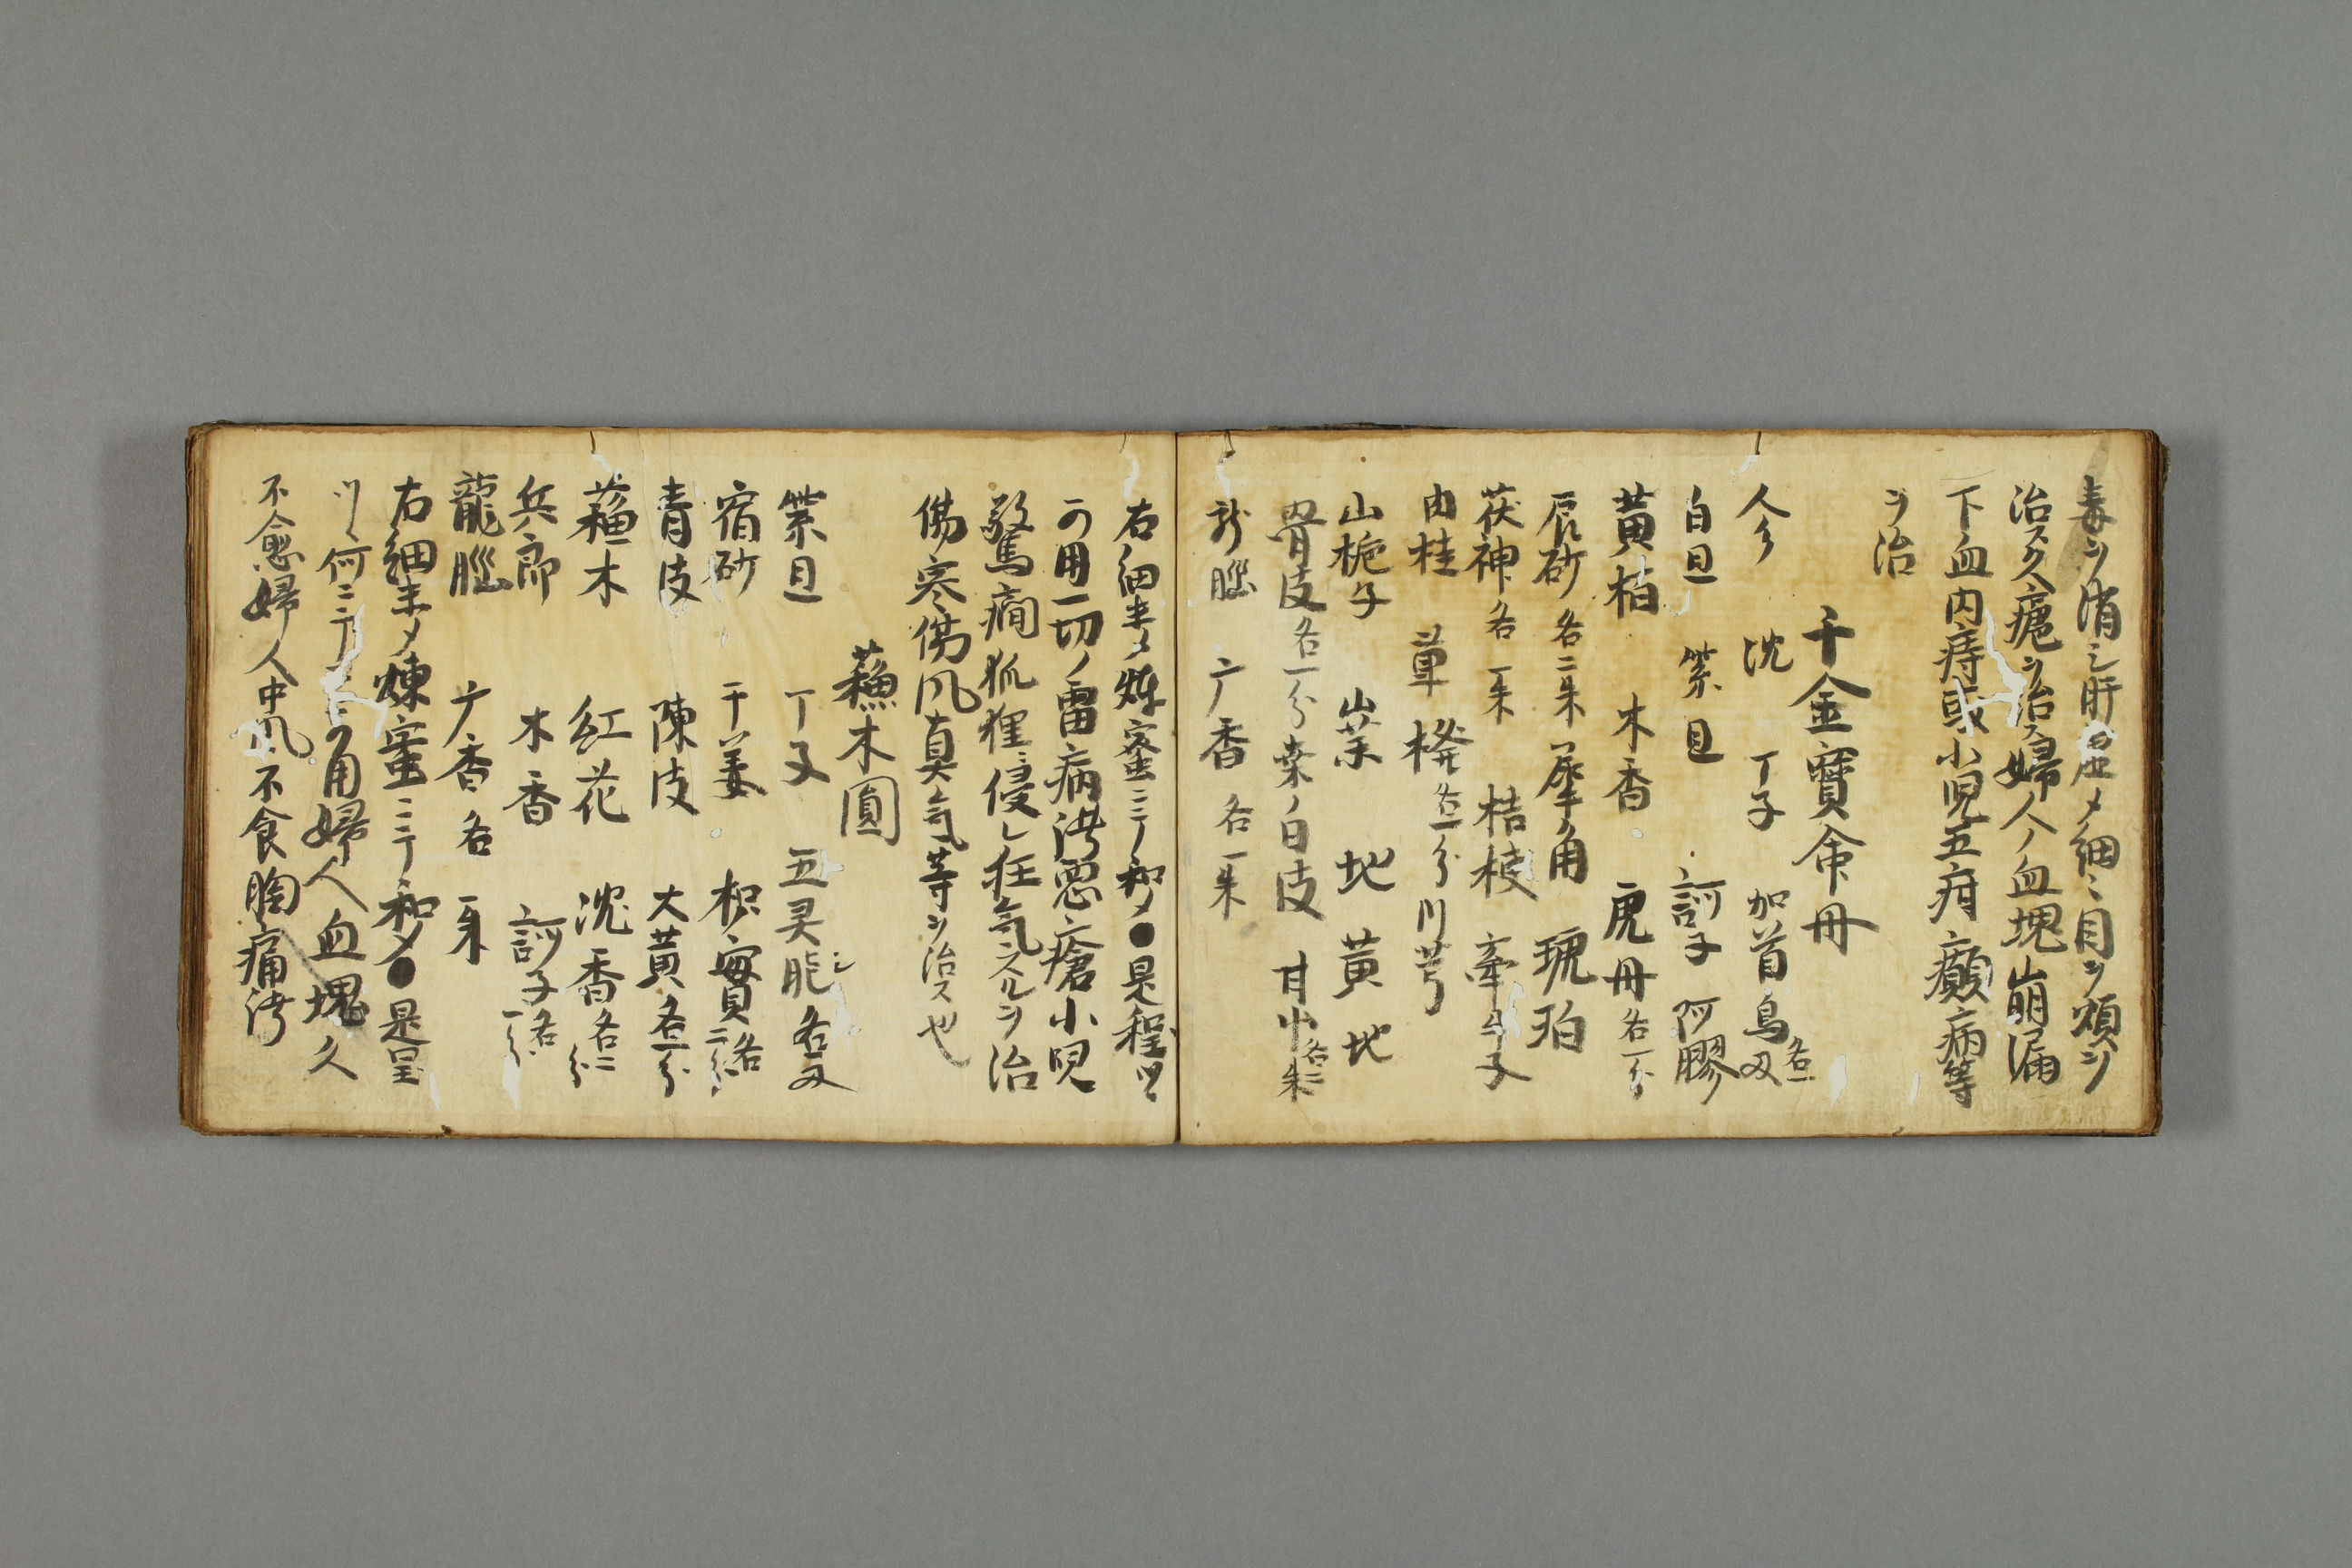 毒ヲ消シ肝虚〆細ミ目ヲ煩ヲ
治ス久瘧ヲ治ス婦人ノ血塊崩漏
下血内痔或小児五疳癲病等
ヲ治
千金寶命丹
人参 沈 丁子 加首烏各一匁
白旦 紫旦 訶子 阿膠
黄栢 木香 虎丹各一分
辰砂各二朱 犀角 琥珀
茯神各一朱 桔梗 牽牛子
肉桂 草橃各一分 川芎
山梔子 山薬 地黄 地
骨皮各一分 桒ノ白皮 甘草各二朱
龍脳 广香各一朱
右細末〆煉蜜ニテ和〆●是程ツヽ
可用一切ノ雷病涝悪瘡小児
驚癇狐狸ニ侵レ狂気スルヲ治
傷寒傷風真気等ヲ治ス也
蘓木圓
紫旦 丁子 五灵脂各匁
宿砂 干姜 枳實各二分
青皮 陳皮 大黄各一分
蘓木 紅花 沈香各二分
兵郎 木香 訶子各一分
龍脳 广香各一朱
右細末〆煉蜜ニテ和〆●是呈
ツヽ何ニテモ可用婦人血塊久
不愈婦人中風不食胸痛涝